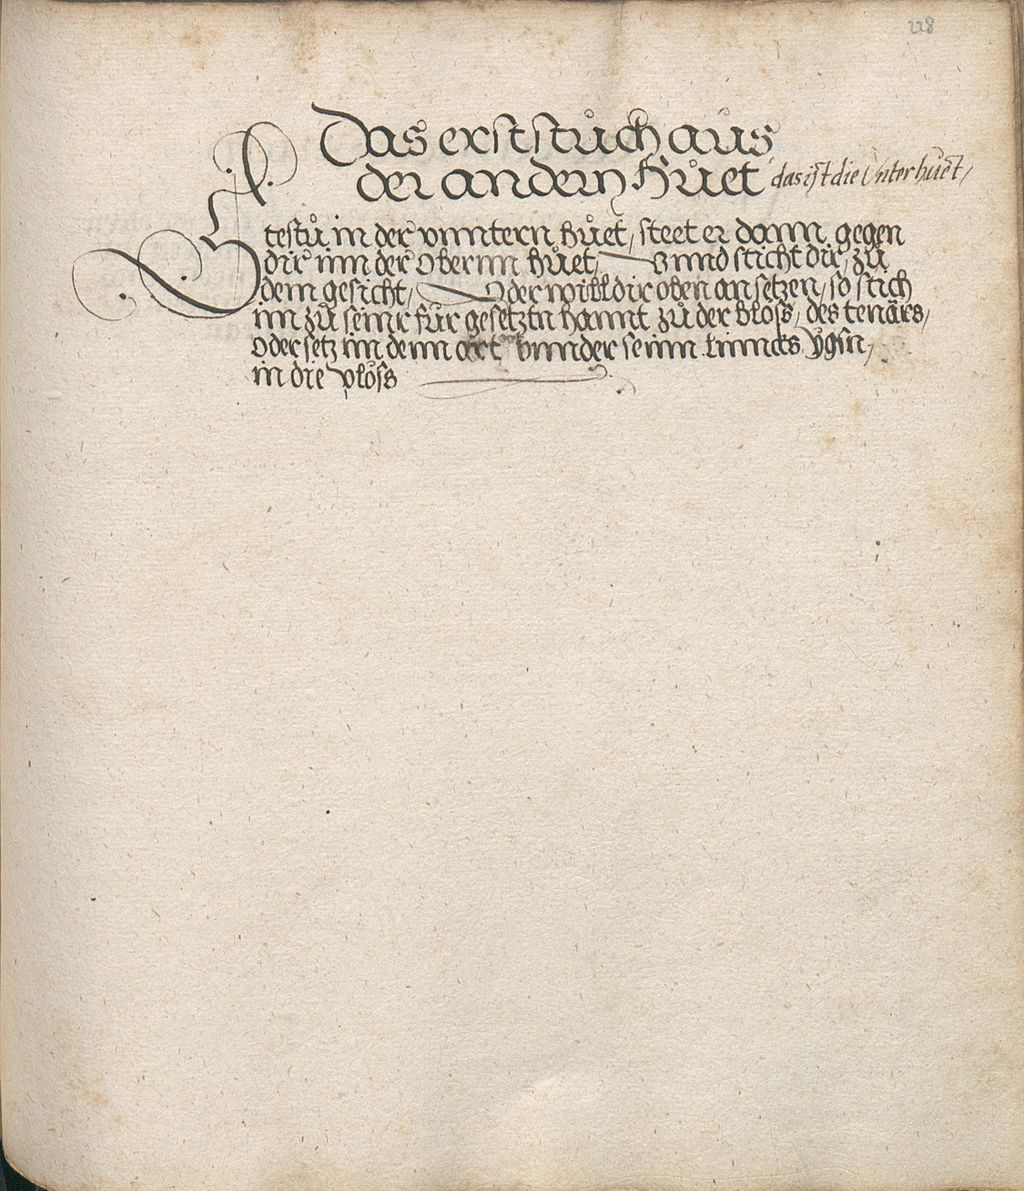 228
Das erst stuch aus
der andern Hůet das ist die Unterhuet /
Stestů in der vnntern Hůet / steet er dann gegen
dir inn der Obernn hůet / Vnnd sticht dir / zů
dem gesicht / Oder will dir oben an setzen / so stich
im zů seinr für gesetztn hannt zů der bloss / des tenärs /
Oder setz im denn ort vnnder seinn linncks Vgsn /
in die vloss